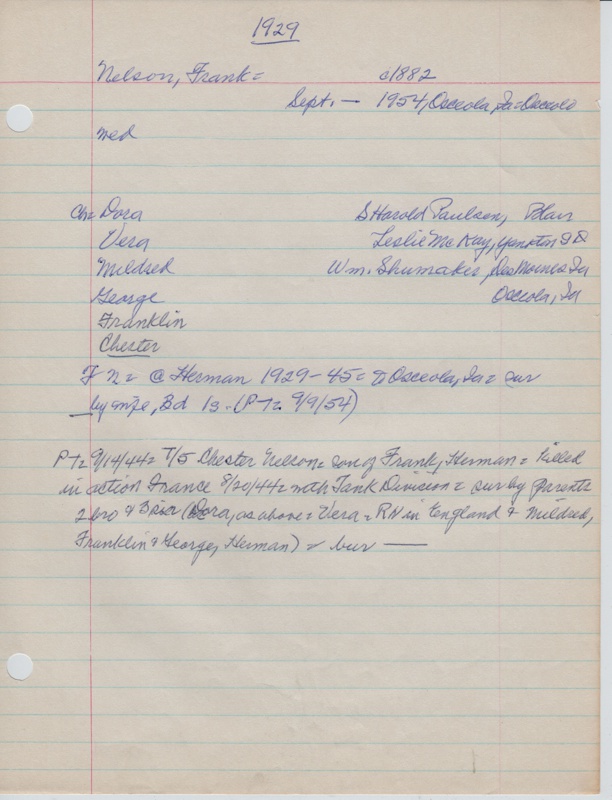 1929
Nelson, Frank = c1882
Sept. — 1954, Osceola, Ia = Osceola
wed
Ch = Dora S Harold Paulsen, Blair
Vera Leslie McKay, Yankton SD
Mildred Wm. Shumaker, Des Moines Ia
George Osceola, Ia
Franklin
Chester
F N = @ Herman 1929-45 = to Osceola, Ia = sur
by wife, 3d 1s. (P-T = 9/9/54)
P-T = 9/14/44 = T/5 Chester Nelson = son of Frank, Herman = killed
in action France 8/20/44 = with Tank Division = sur by parents
2 bro & 3 sis (Dora, as above = Vera = RN in England & Mildred,
Franklin & George, Herman) = bur —